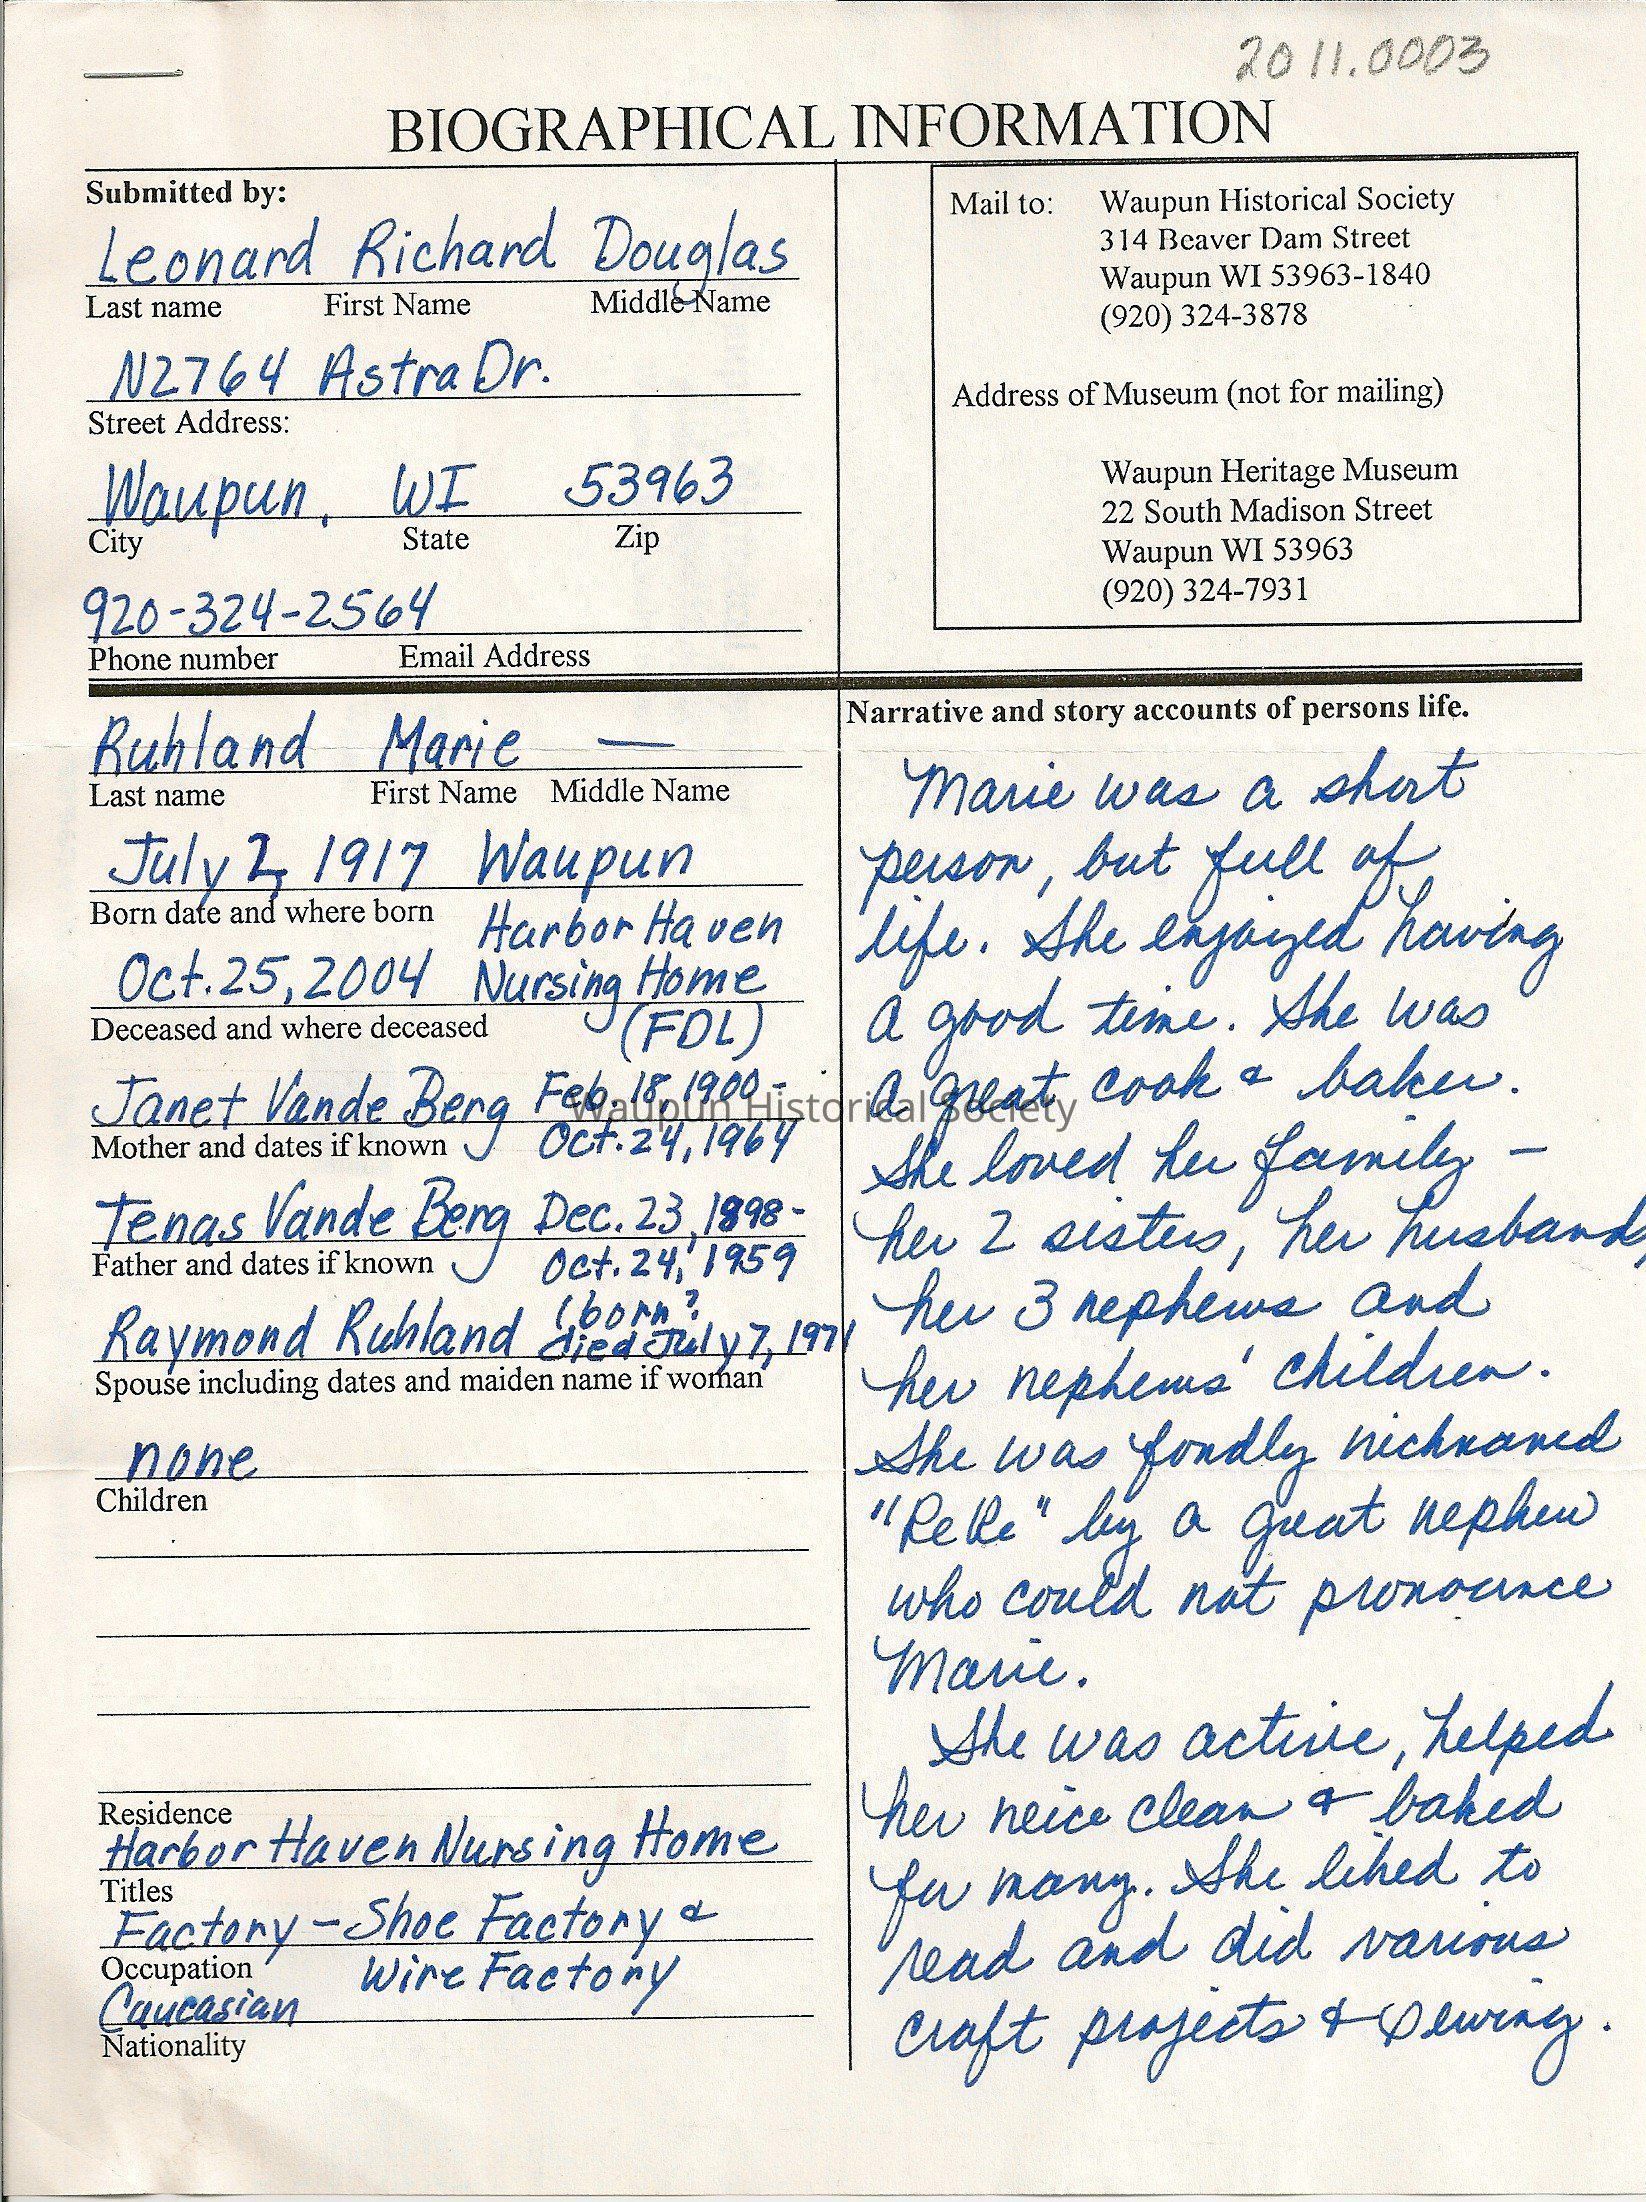 2011.0003
BIOGRAPHICAL INFORMATION
Submitted by:
Leonard Richard Douglas
Last name First Name Middle Name
N2764 Astra Dr.
Street Address:
Waupun, WI 53963
City State Zip
920-324-2564
Phone number Email Address
Mail to: Waupun Historical Society
314 Beaver Dam Street
Waupun WI 53963-1840
(920) 324-3878
Address of Museum (not for mailing)
Waupun Heritage Museum
22 South Madison Street
Waupun WI 53963
(920) 324-7931
Ruhland Marie —
Last name First Name Middle Name
July 2, 1917 Waupun
Born date and where born
Harbor Haven
Oct. 25, 2004 Nursing Home
Deceased and where deceased (FDL)
Janet Vande Berg Feb. 18, 1900 -
Mother and dates if known Oct. 24, 1964
Tenas Vande Berg Dec. 23, 1898 -
Father and dates if known Oct. 24, 1959
(born?
Raymond Ruhland died July 7, 1971
Spouse including dates and maiden name if woman
none
Children
Residence
Harbor Haven Nursing Home
Titles
Factory - Shoe Factory &
Occupation Wire Factory
Caucasian
Nationality
Narrative and story accounts of persons life.
Marie was a short
person, but full of
life. She enjoyed having
a good time. She was
a great cook & baker.
She loved her family -
her 2 sisters, her husband,
her 3 nephews and
her nephews' children.
She was fondly nicknamed
"ReRe" by a great nephew
who could not pronounce
Marie.
She was active, helped
her neice clean & baked
for many. She liked to
read and did various
craft projects & sewing.
Waupun Historical Society